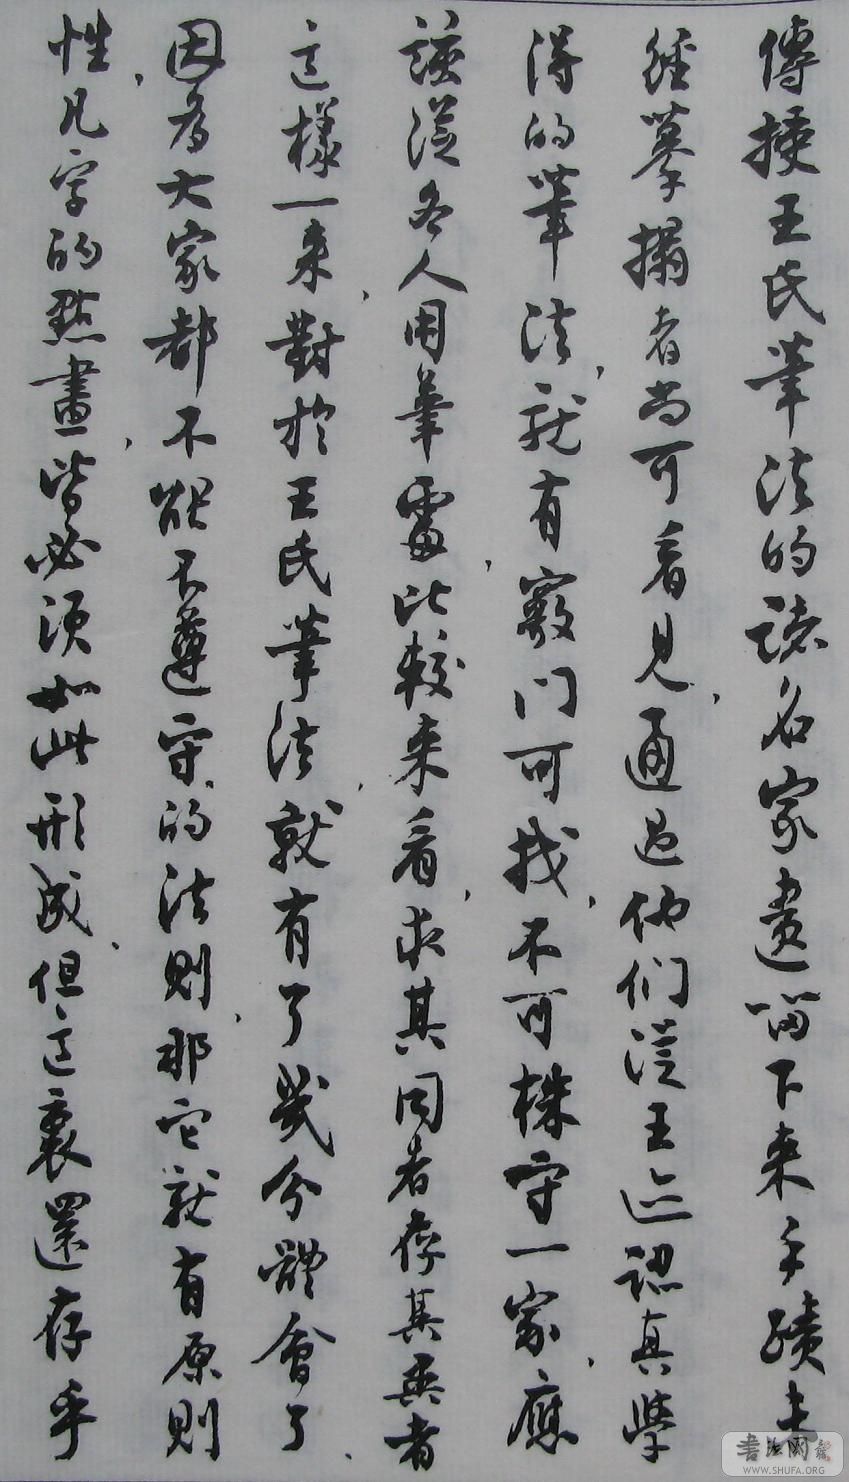 傳授王氏筆法的諸名家遺留下来手蹟未
經摹搨者尚可看見、通過他们從王迹認真學
得的筆法、就有竅门可找、不可株守一家、應
該從各人用筆處、比較来看、求其同者存其異者
這樣一来、對於王氏筆法、就有了幾分體會了、
因爲大家都不能不遵守的法則、那它就有原則
性、凡字的點畫、皆必須如此形成、但這裏還存乎
書法网
WWW.SHUFA.ORG